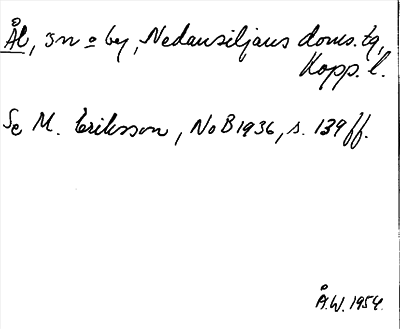 Ål, sn o by, Nedansiljans doms. tg,
Kopp. l.
Se M. Eriksson, NoB 1936, s. 139 ff.
Å.W. 1954.